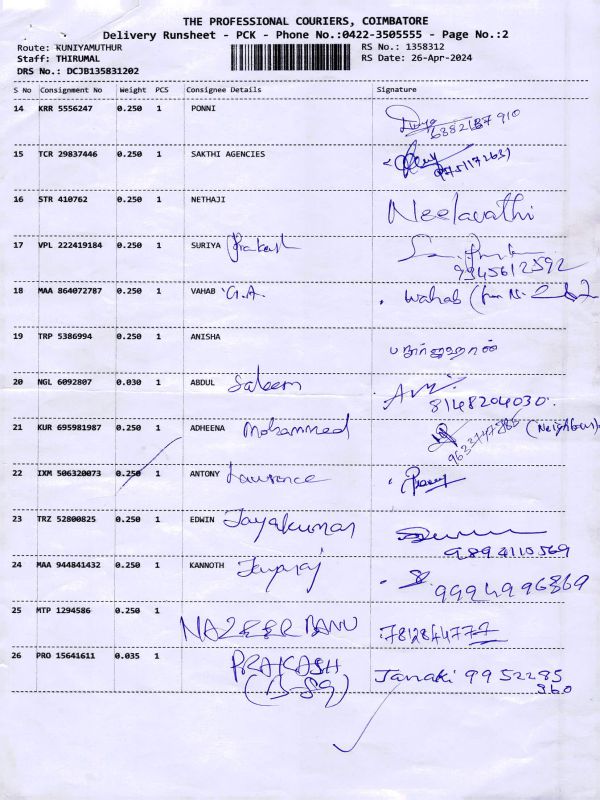 THE PROFESSIONAL COURIERS, COIMBATORE
Delivery Runsheet - PCK - Phone No.:0422-3505555 - Page No.:2
Route: KUNIYAMUTHUR RS No.: 1358312
Staff: THIRUMAL RS Date: 26-Apr-2024
DRS No.: DCJB135831202
S No Consignment No Weight PCS Consignee Details Signature
14 KRR 5556247 0.250 1 PONNI
15 TCR 29837446 0.250 1 SAKTHI AGENCIES
16 STR 410762 0.250 1 NETHAJI Neelavathi
17 VPL 222419184 0.250 1 SURIYA Prakash
9345612592
18 MAA 864072787 0.250 1 VAHAB G.A. Wahab
19 TRP 5386994 0.250 1 ANISHA
20 NGL 6092807 0.030 1 ABDUL Saleem
8148204030.
21 KUR 695981987 0.250 1 ADHEENA Mohammed (Neighbour)
22 IXM 506320073 0.250 1 ANTONY Lawrence
23 TRZ 52800825 0.250 1 EDWIN Jayakumar
9894110569
24 MAA 944841432 0.250 1 KANNOTH Jayaraj 9994996869
25 MTP 1294586 0.250 1 NAZEER BANU 7812844777
26 PRO 15641611 0.035 1 PRAKASH Janaki 9952295
(B-89) 360